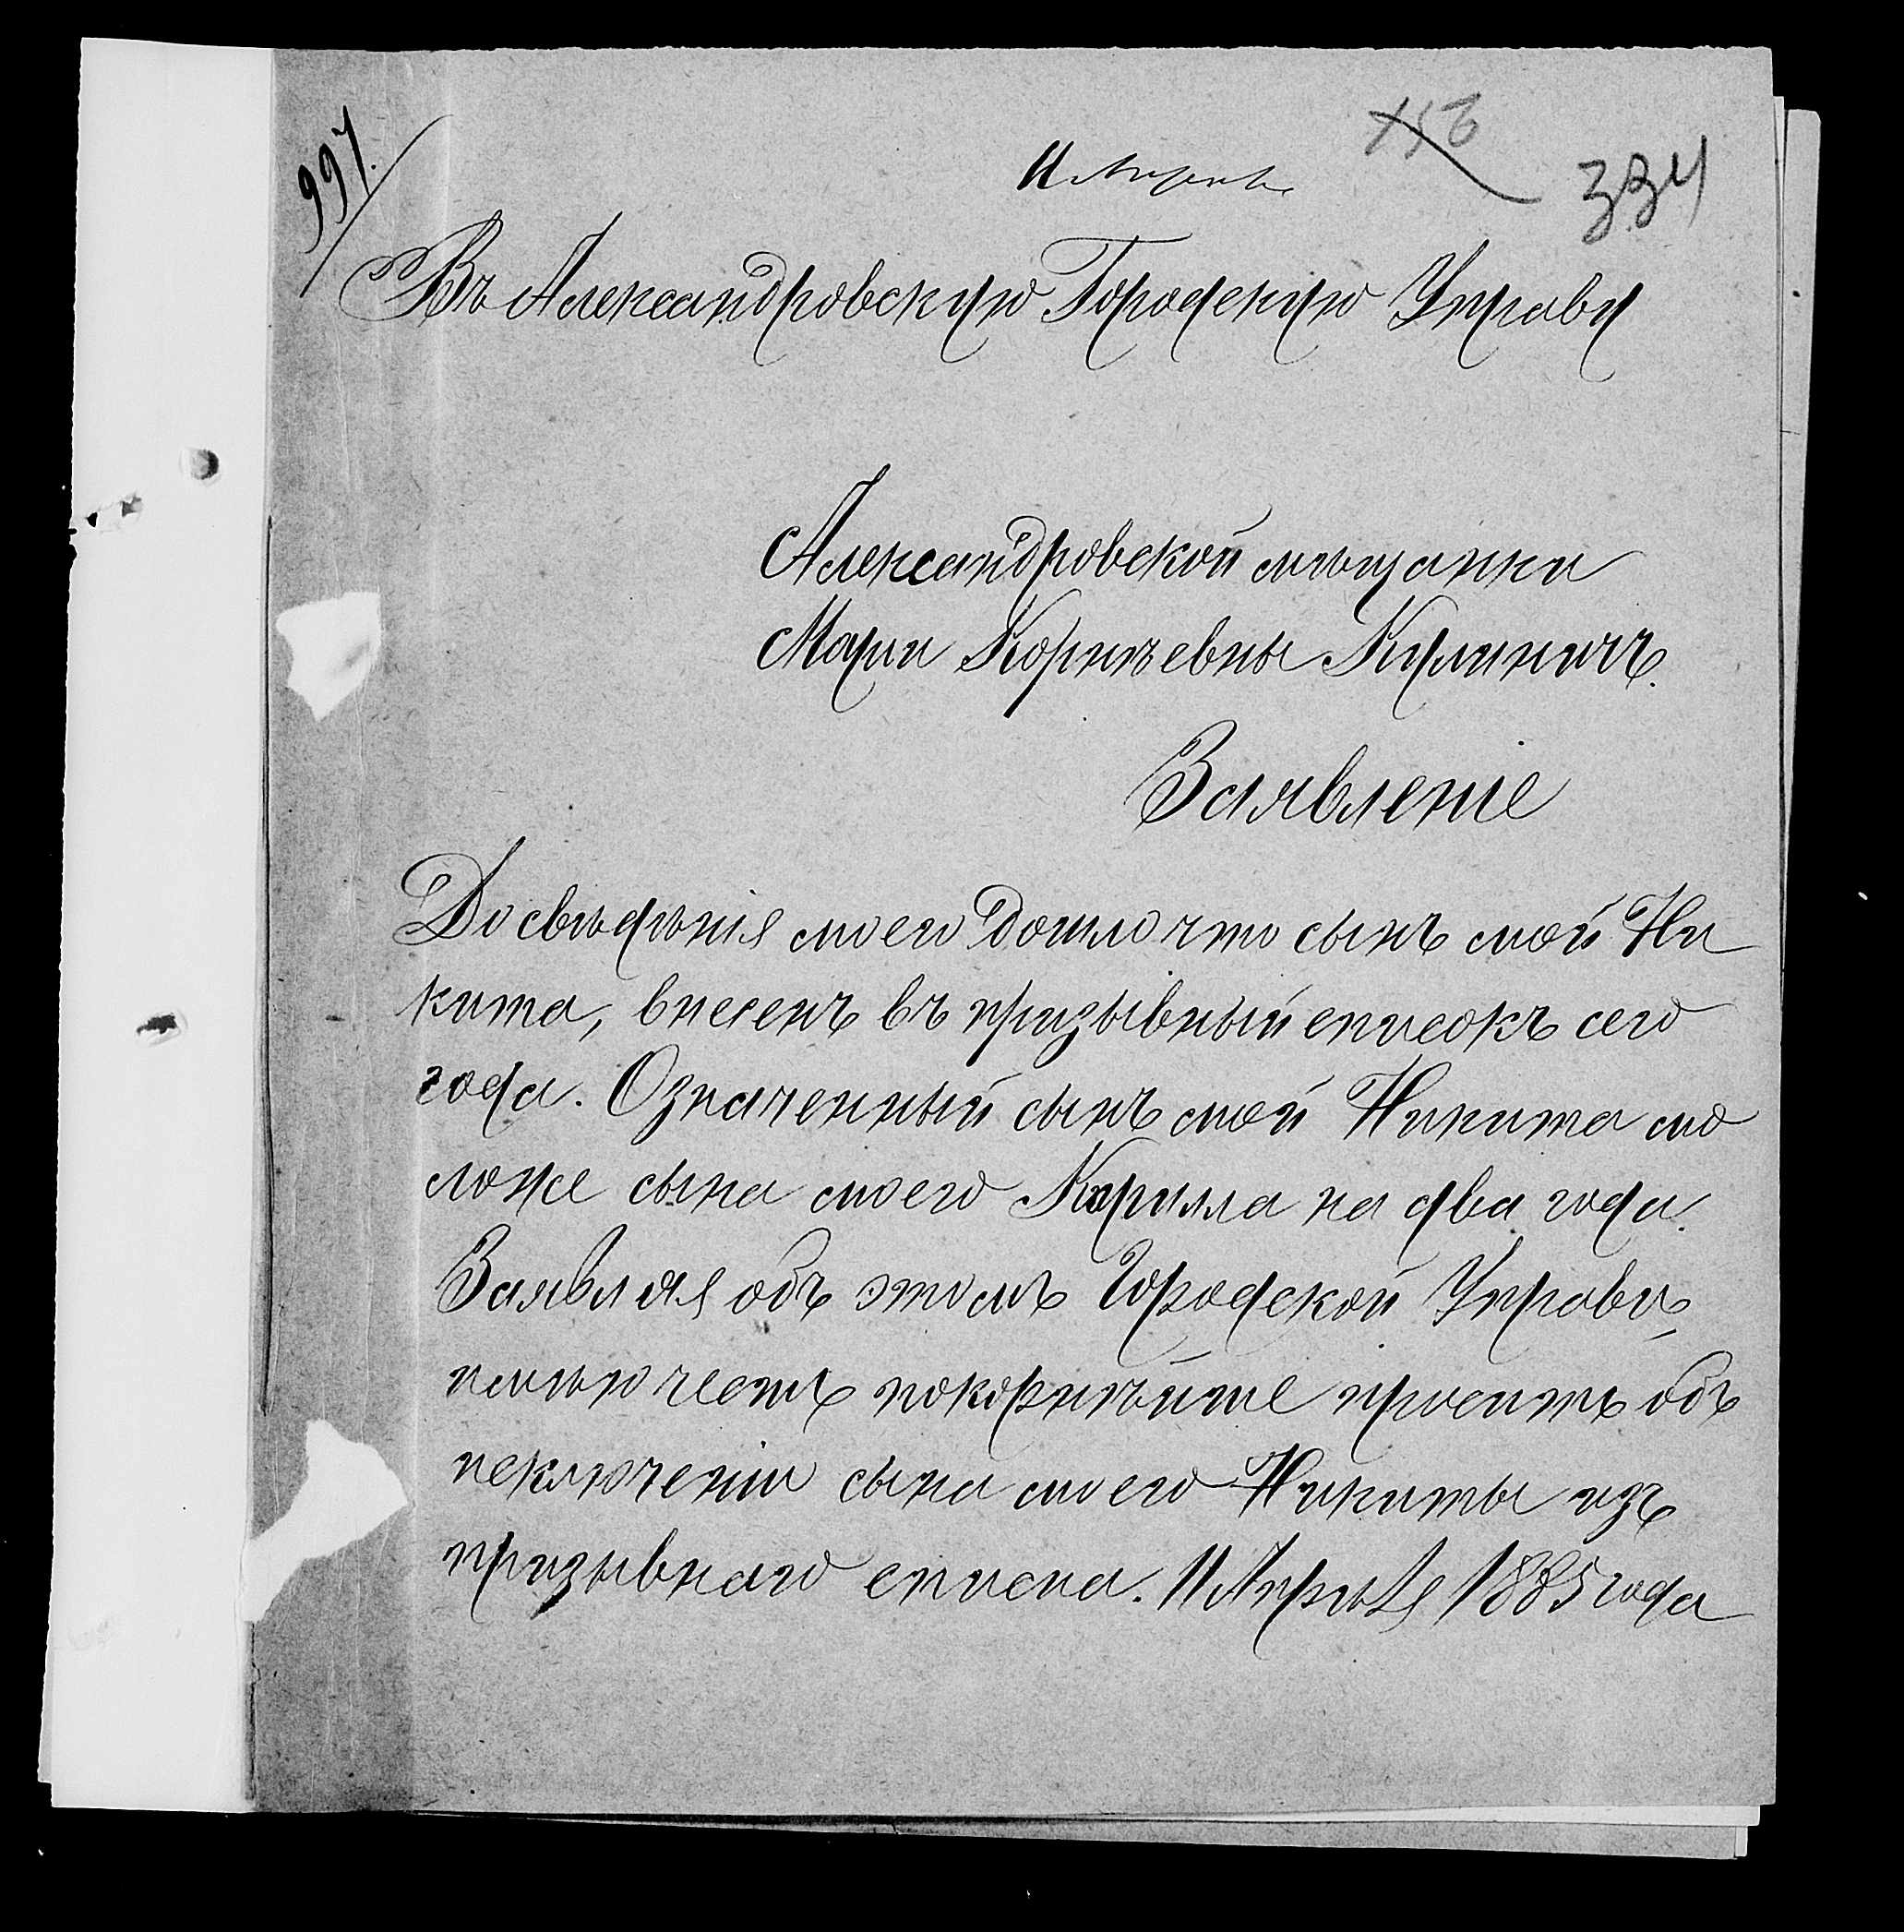 997.
11 Апрель
334
Въ Александровскую Городскую Управу
Александровской мѣщанки
Маріи Корнѣевны Кулиничъ.
Заявленіе
До свѣдѣнія моего дошло что сынъ мой Ни
кита, внесенъ въ призывный списокъ сего
года. Означенный сынъ мой Никита мо
ложе сына моего Кирилла на два года.
Заявляя объ этомъ Городской Управѣ,
имѣю честь покорнѣйше просить объ
исключеніи сына моего Никиты изъ
призывнаго списка. 11 Апрѣля 1885 года